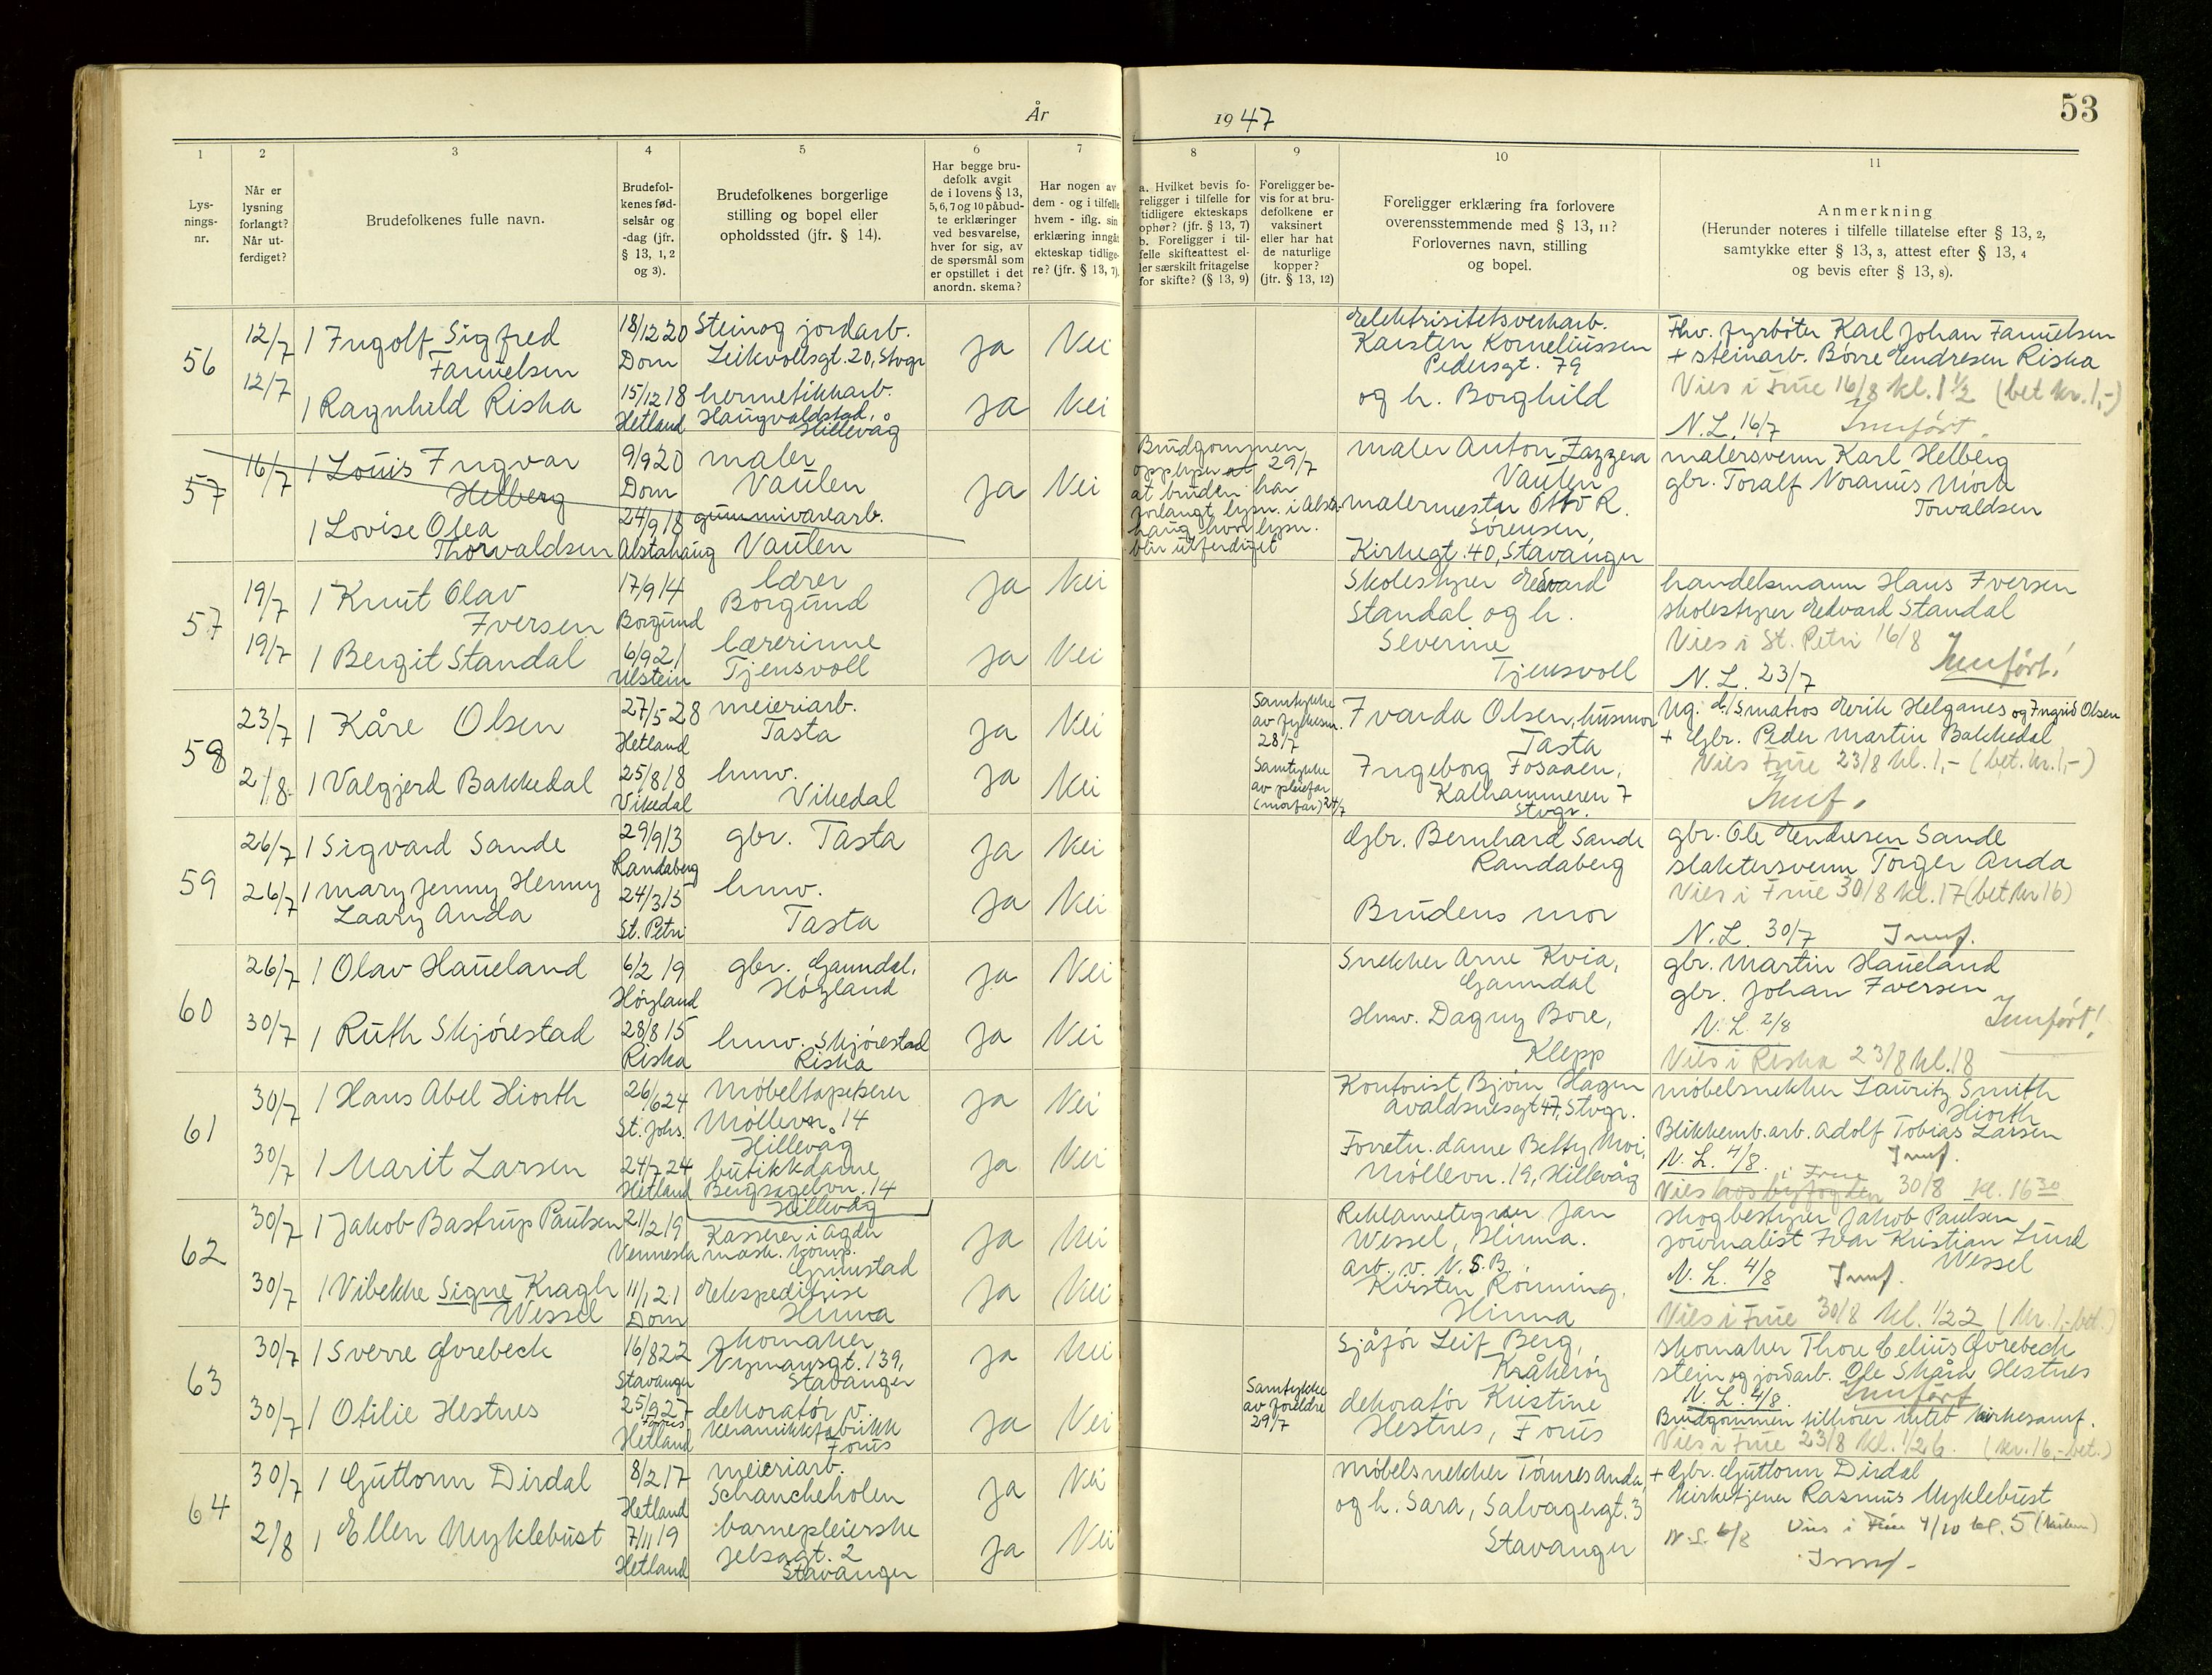 53
År 1947
1
Lys-
nings-
nr.
2
Når er
lysning
forlangt?
Når ut-
ferdiget?
3
Brudefolkenes fulle navn.
4
Brudefol-
kenes fød-
selsår og
-dag (jfr.
§ 13, 1, 2
og 3).
5
Brudefolkenes borgerlige
stilling og bopel eller
opholdssted (jfr. § 14).
6
Har begge bru-
defolk avgit
de i lovens § 13,
5, 6, 7 og 10 påbud-
te erklæringer
ved besvarelse,
hver for sig, av
de spørsmål som
er opstillet i det
anordn. skema?
7
Har nogen av
dem - og i tilfelle
hvem - iflg. sin
erklæring inngåt
ekteskap tidlige-
re? (jfr. § 13, 7).
8
a. Hvilket bevis fo-
religger i tilfelle for
tidligere ekteskaps
ophør? (jfr. § 13, 7)
b. Foreligger i til-
felle skifteattest el-
ler særskilt fritagelse
for skifte? (§ 13, 9)
9
Foreligger be-
vis for at bru-
defolkene er
vaksinert
eller har hat
de naturlige
kopper?
(jfr. § 13, 12)
10
Foreligger erklæring fra forlovere
overensstemmende med § 13, 11?
Forlovernes navn, stilling
og bopel.
11
Anmerkning
(Herunder noteres i tilfelle tillatelse efter § 13, 2,
samtykke efter § 13, 3, attest efter § 13, 4
og bevis efter § 13, 8).
56
12/7 1 Ingolf Sigfred
Fanuelsen
18/12 20
Dom
Stein og jordarb.
Leikvollsgt. 20, Stvgr
Ja Nei
12/7 1 Ragnhild Riska
15/12 18
Hetland
hermetikkarb.
Haugvaldstad,
Hillevåg
Ja Nei
Elektrisitetsverkarb.
Karsten Korneliussen
Pedersgt. 79
og h. Borghild
Fhv. fyrbøter Karl Johan Fanuelsen
+ steinarb. Børre Endresen Riska
Vies i Frue 16/8 kl. 1 1/2 (bet kr. 1,-)
N.L. 16/7 Innført.
57
16/7 1 Louis Ingvar
Helberg
9/9 20
Dom
maler
Vaulen
Ja Nei
1 Lovise Olea
Thorvaldsen
24/9 18
Alstahaug
gummivarearb.
Vaulen
Brudgommen
opplyser at 29/7
at bruden har
forlangt lysn. i Alsta-
haug hvor lysn.
blir utferdiget
maler Anton Zazzera
Vaulen
malermester Otto R.
Sørensen,
Kirkegt. 40, Stavanger
malersvenn Karl Helberg
gbr. Toralf Noranus Mork
Torvaldsen
57
19/7 1 Knut Olav
Iversen
17/9 14
Borgund
lærer
Borgund
Ja Nei
19/7 1 Bergit Standal
6/9 21
Ulstein
lærerinne
Tjensvoll
Ja Nei
Skolestyrer Edvard
Standal og h.
Severine
Tjensvoll
handelsmann Hans Iversen
skolestyrer Edvard Standal
Vies i St. Petri 16/8
Innført!
N.L. 23/7
58
23/7 1 Kåre Olsen
27/5 28
Hetland
meieriarb.
Tasta
Ja Nei
2/8 1 Valgjerd Bakkedal
25/8 18
Vikedal
hmv.
Vikedal
Ja Nei
Samtykke
av fylkesm.
28/7
Samtykke
av pleiefar
(morfar) 24/7
Ivarda Olsen, husmor
Tasta
Ingeborg Fosaaen,
Kalhammeren 7
Stvgr.
Ug. d/s matros Erik Helganes og Ingrid Olsen
+ Gbr. Peder Martin Bakkedal
Vies Frue 23/8 kl. 1,- (bet. kr. 1,-)
Innf.
59
26/7 1 Sigvard Sande
29/9 13
Randaberg
gbr. Tasta
Ja Nei
26/7 1 Mary Jenny Henny
Laary Anda
24/3 15
St. Petri
hmv.
Tasta
Ja Nei
Gbr. Bernhard Sande
Randaberg
Brudens mor
gbr. Ole Endresen Sande
slaktersvenn Torger Anda
Vies i Frue 30/8 kl. 17 (bet kr 16)
N.L. 30/7 Innf.
60
26/7 1 Olav Haueland
6/2 19
Høyland
gbr. Ganndal,
Høyland
Ja Nei
30/7 1 Ruth Skjørestad
28/8 15
Riska
hmv. Skjørestad
Riska
Ja Nei
Snekker Arne Kvia,
Ganndal
Hmv. Dagny Bore,
Klepp
gbr. Martin Haueland
gbr. Johan Iversen
N.L. 2/8 Innført!
Vies i Riska 23/8 kl. 18
61
30/7 1 Hans Abel Hiorth
26/6 24
St. Johs.
Møbeltapetserer
Møllevn. 14
Hillevåg
Ja Nei
30/7 1 Marit Larsen
24/7 24
Hetland
butikkdame
Bergsagelvn. 14
Hillevåg
Ja Nei
Kontorist Bjørn Hagen
Avaldsnesgt 47, Stvgr.
Forretn. dame Betty Moi,
Møllevn. 19, Hillevåg
møbelsnekker Lauritz Smith
Hiorth
Blikkemb.arb. Adolf Tobias Larsen
N.L. 4/8. Innf.
i Frue
Vies hos byfogden 30/8 kl. 16 30
62
30/7 1 Jakob Bastrup Paulsen
21/2 19
Vennesla
Kasserer i Agder
mask. komp.
Grimstad
Ja Nei
30/7 1 Vibekke Signe Kragh
Wessel
11/1 21
Dom
Ekspeditrise
Hinna
Ja Nei
Reklametegner Jan
Wessel, Hinna.
arb. v. N.S.B.
Kirsten Rønning,
Hinna
skogbestyrer Jakob Paulsen
journalist Ivar Kristian Lund
Wessel
N.L. 4/8 Innf.
Vies i Frue 30/8 kl. 1/2 2 (kr. 1,- bet.)
63
30/7 1 Sverre Øvrebeck
16/8 22
Stavanger
skomaker
Nymansgt. 139,
Stavanger
Ja Nei
30/7 1 Otilie Hestnes
25/9 27
Forus
Hetland
dekoratør v.
keramikkfabrikk
Forus
Ja Nei
Samtykke
av foreldre
29/7
Sjåfør Leif Berg,
Kråkerøy
dekoratør Kristine
Hestnes, Forus
skomaker Thore Celius Øvrebeck
stein og jordarb. Ole Skårn Hestnes
N.L. 4/8. Innført
Brudgommen tilhører intet kirkesamf.
Vies i Frue 23/8 kl. 1/2 6. (kr. 16,- bet.)
64
30/7 1 Guttorm Dirdal
8/2 17
Hetland
meieriarb.
Schancheholen
Ja Nei
2/8 1 Ellen Myklebust
7/11 19
Hetland
barnepleierske
Jelsagt. 2
Stavanger
Ja Nei
Møbelsnekker Tønnes Anda,
og h. Sara, Salvagergt. 3
Stavanger
+ Gbr. Guttorm Dirdal
Kirketjener Rasmus Myklebust
N.L. 6/8 Vies i Frue 4/10 kl. 5
Innf.